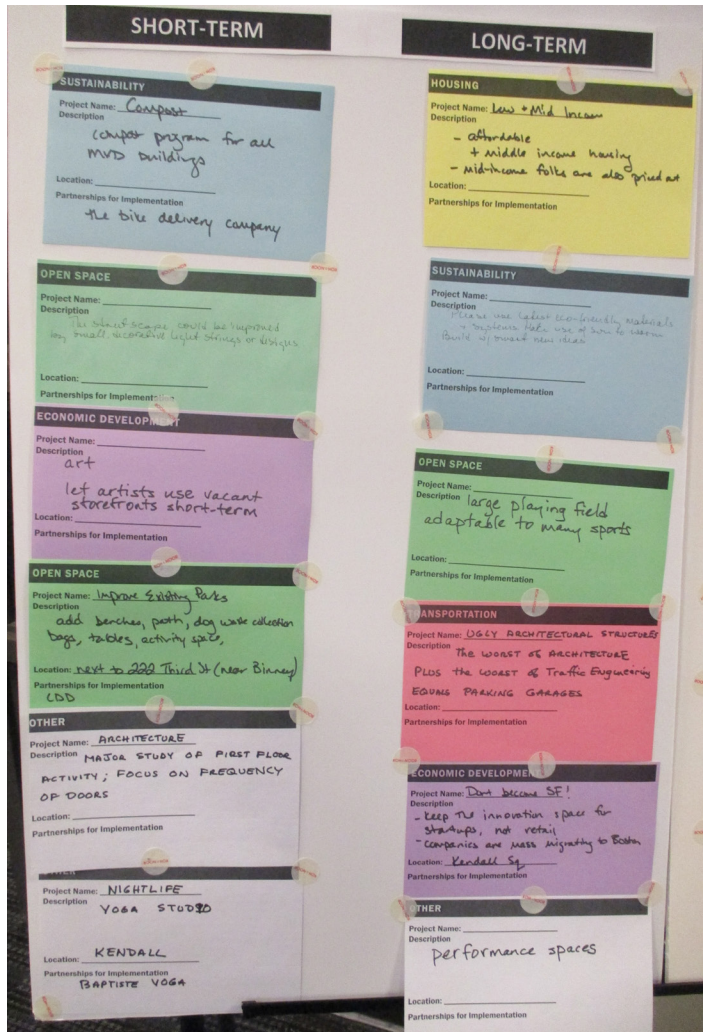 SHORT-TERM
SUSTAINABILITY
Project Name: Compost
Description
compost program for all
MVD buildings
Location:
Partnerships for Implementation
the bike delivery company
OPEN SPACE
Project Name:
Description
The streetscape could be improved
by small decorative light strings or designs
Location:
Partnerships for Implementation
ECONOMIC DEVELOPMENT
Project Name:
Description
art
let artists use vacant
storefronts short-term
Location:
Partnerships for Implementation
OPEN SPACE
Project Name: Improve Existing Parks
Description
add benches, path, dog waste collection
bags, tables, activity space,
Location: next to 222 Third St (near Binney)
Partnerships for Implementation
CDD
OTHER
Project Name: ARCHITECTURE
Description MAJOR STUDY OF FIRST FLOOR
ACTIVITY; FOCUS ON FREQUENCY
OF DOORS
Location:
Partnerships for Implementation
OTHER
Project Name: NIGHTLIFE
Description
YOGA STUDIO
Location: KENDALL
Partnerships for Implementation
BAPTISTE YOGA
LONG-TERM
HOUSING
Project Name: Low + Mid Income
Description
- affordable
+ middle income housing
- mid-income folks are also priced out
Location:
Partnerships for Implementation
SUSTAINABILITY
Project Name:
Description
Please use latest eco-friendly materials
+ systems take use of sun to warm
Build w/ smart new ideas
Location:
Partnerships for Implementation
OPEN SPACE
Project Name:
Description large playing field
adaptable to many sports
Location:
Partnerships for Implementation
TRANSPORTATION
Project Name: UGLY ARCHITECTURAL STRUCTURES
Description THE WORST OF ARCHITECTURE
PLUS the WORST OF Traffic Engineering
EQUALS PARKING GARAGES
Location:
Partnerships for Implementation
ECONOMIC DEVELOPMENT
Project Name: Dont become SF!
Description
- Keep the innovation space for
startups, not retail
- Companies are mass migratty to Boston
Location: Kendall Sq
Partnerships for Implementation
OTHER
Project Name:
Description
performance spaces
Location:
Partnerships for Implementation